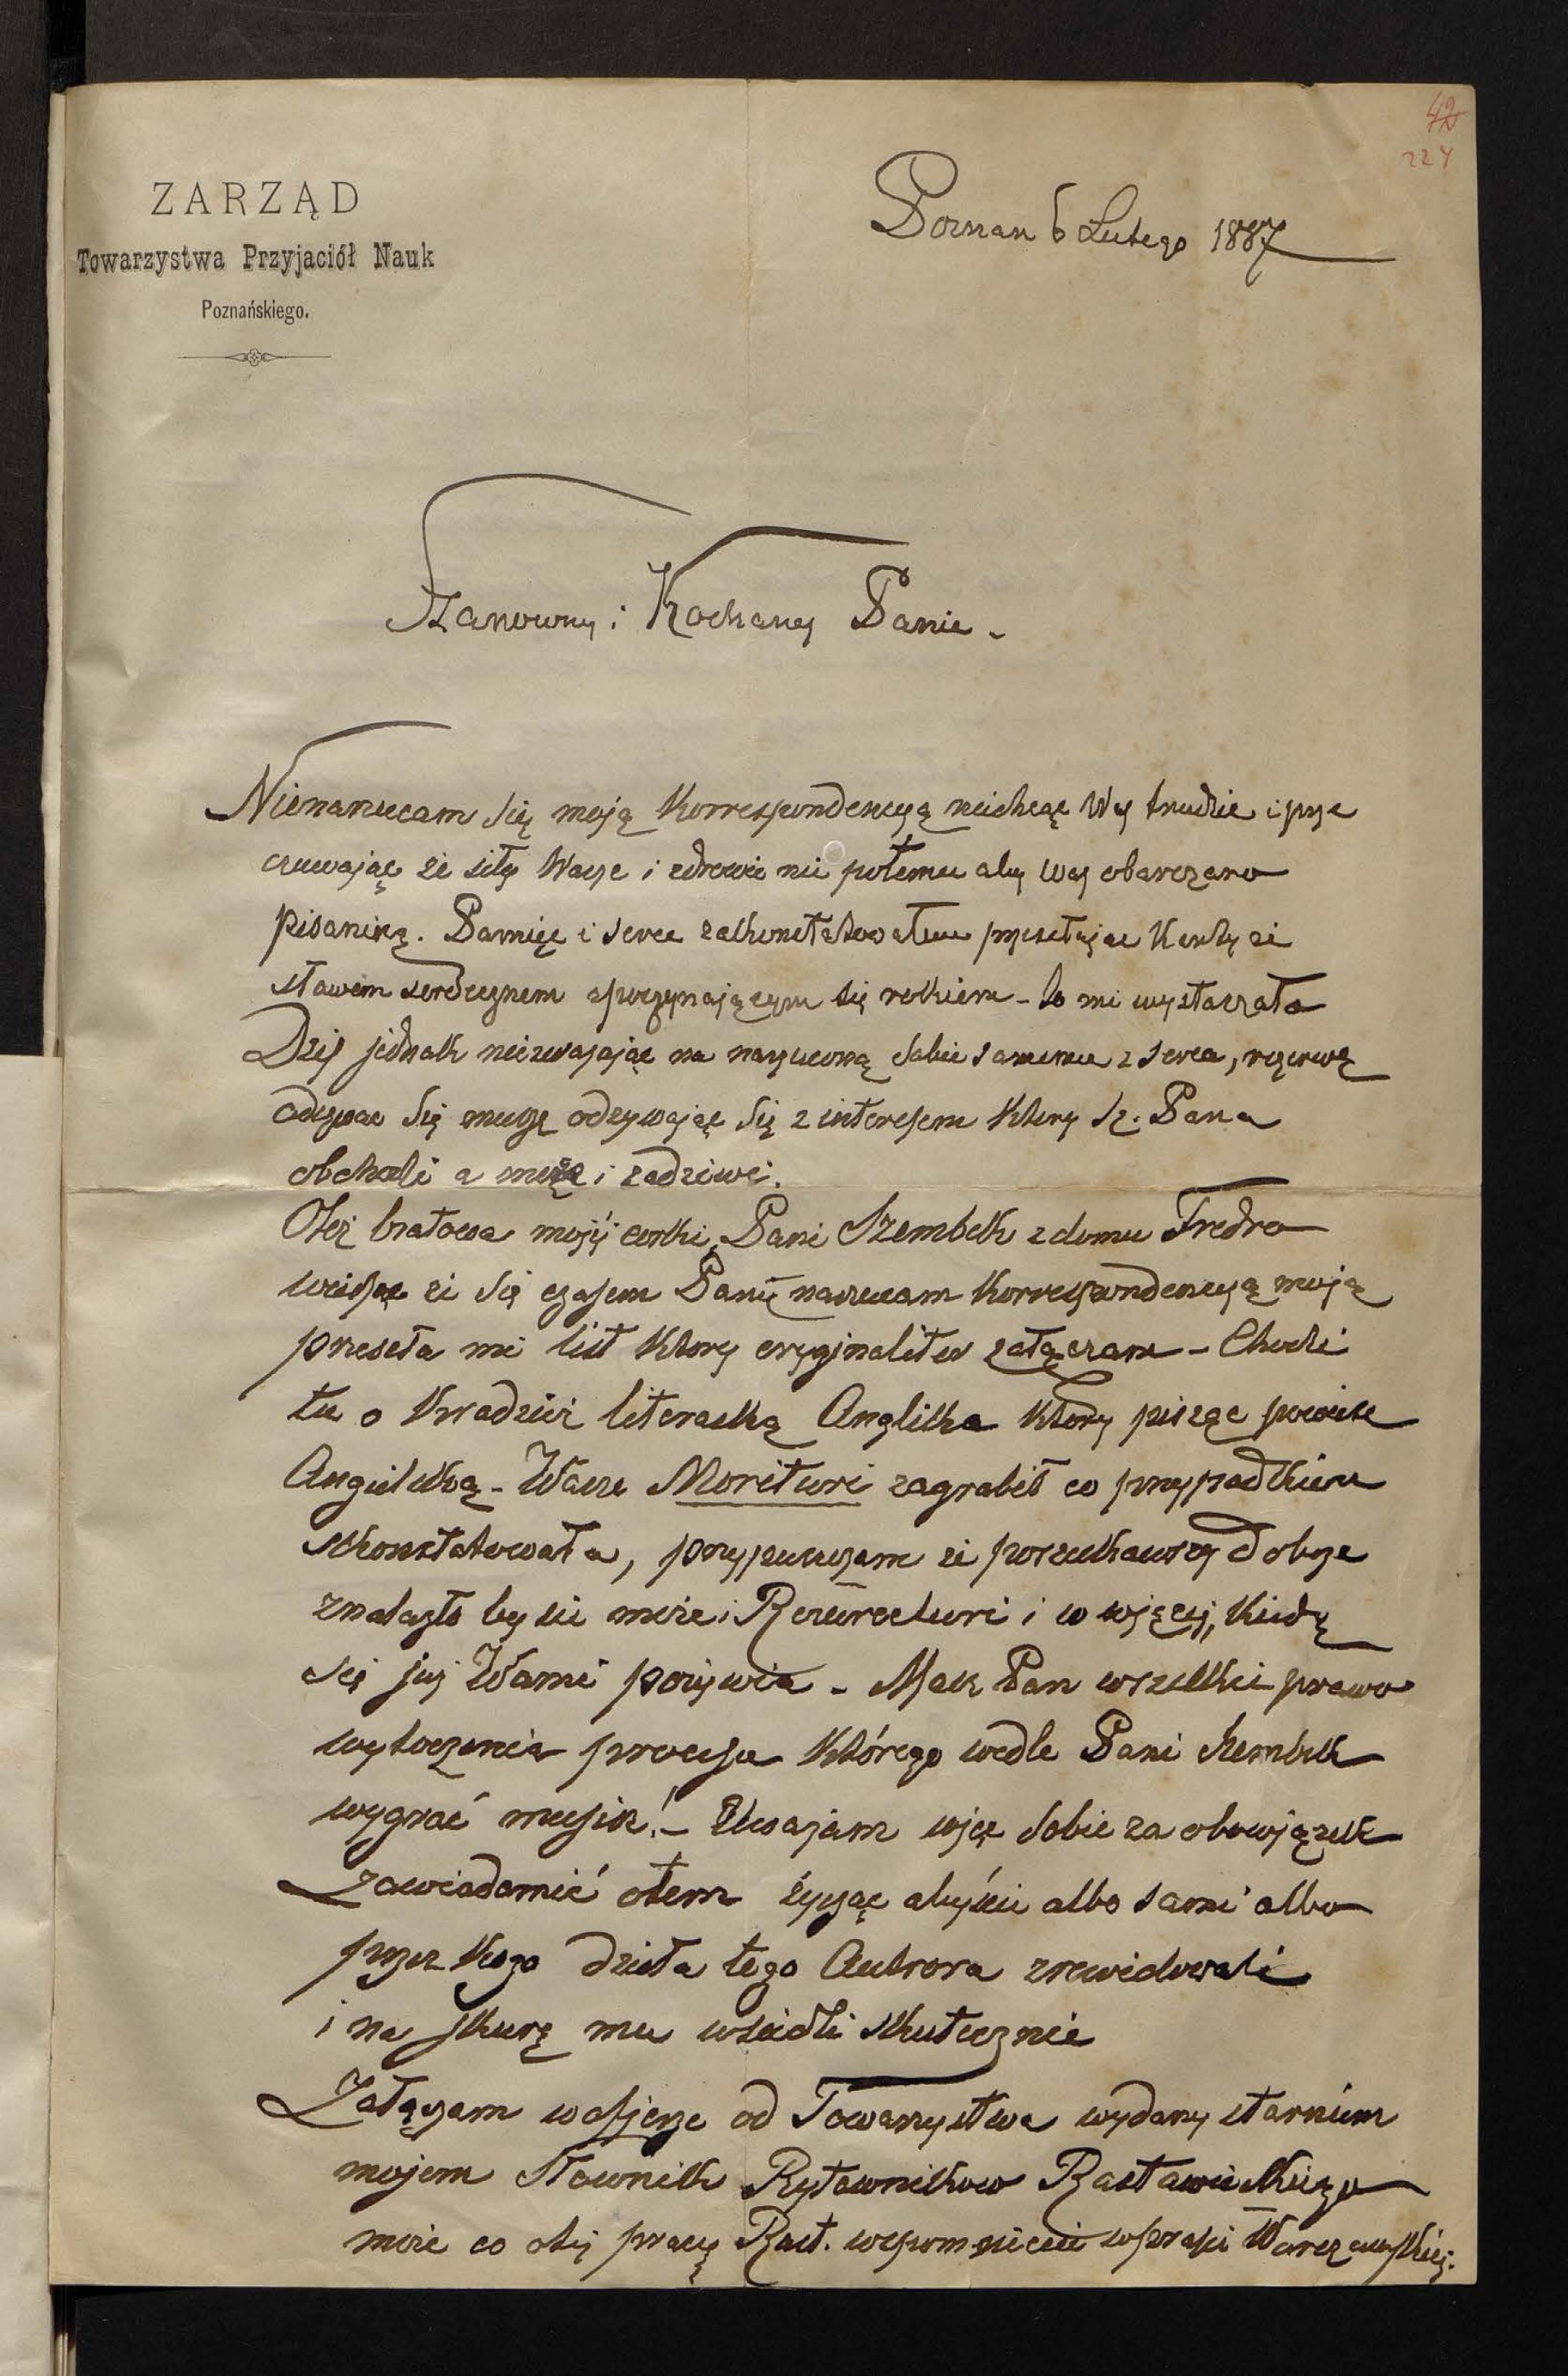 42
224
ZARZĄD
Towarzystwa Przyjaciół Nauk
Poznańskiego.
Poznan 6 Lutego 1887
Szanowny i Kochany Panie -
Nienarzucam się moją Korrespondencyą niechcąc Wy trudzić i prze
czuwając że siły Wasze i zdrowie nie potemu aby Was obarczano
pisaniną. Pamięć i serce zakonstatowałem przesełając Kartę ze
słowem serdecznem zpoczynającym się rokiem - to mi wystarzała
Dziś jednak niezwazając na narzuconą sobie samemu z serca, rezerwę
odezwac się muszę odzywając się z interesem ktory Sz. Pana
obchodzi a może i zadziwi.
Otóż bratowa mojéj corki, Pani Szembek z domu Fredro
wiedząc że się czasem Panu narzucam Korrespondencyą moją
przeseła mi list ktory oryginaliter załączam - Chodzi
tu o Kradzież literacką Anglika ktory pisząc powieść
Angielską - Wasze Morituri zagrabił co przypadkiem
skonstatowała, przypuszczam że poszukawszy dobrze
znalazło by się może i Resurecturi i co więcej, kiedy
się już Wami pożywia - Masz Pan wszelkie prawo
wytoczenia processu którego wedle Pani Szembek
wygrać musisz! - Uwazam więc sobie za obowiązek
zawiadomić otem życząc abyście albo sami albo
przez kogo dzieła tego Autrora zrewidowali
i na skurę mu wsiedli skutecznie
Załączam w ofierze od Towarzystwa wydany staraniem
mojem Słownik Rytownikow Rastawieckiego
może co otej pracy Rast. wspomnicie w prasie Warszawskiej.